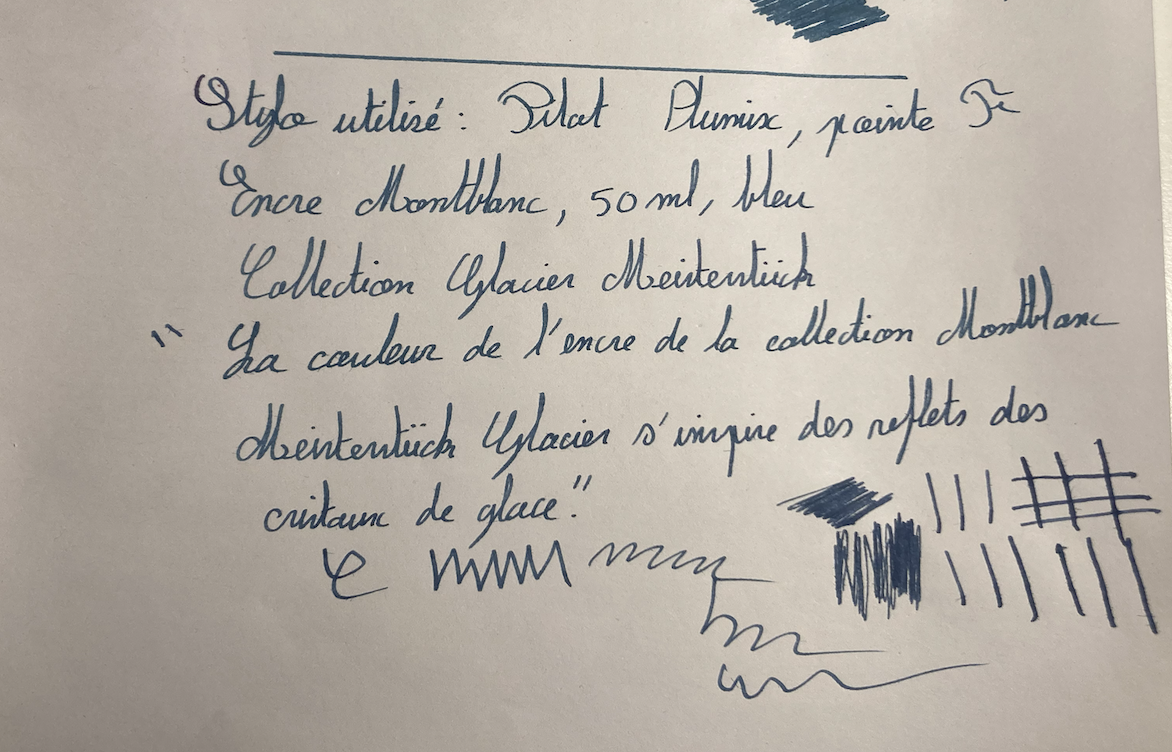 Stylo utilisé : Pilot Plumix, pointe
Encre Montblanc, 50 ml, bleu
Collection Glacier Meisterstück
" La couleur de l'encre de la collection Montblanc
Meisterstück Glacier s'inspire des reflets des
cristaux de glace."